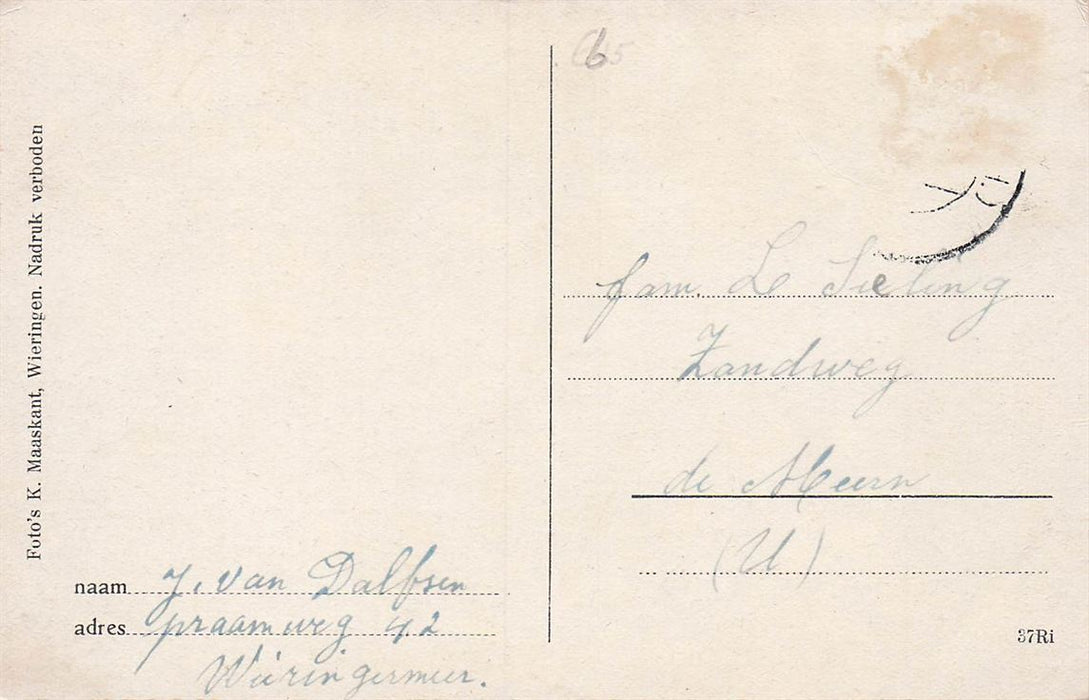 Foto's K. Maaskant, Wieringen. Nadruk verboden
65
fam. L Sieling
Zandweg
de Meern
(U)
naam J. van Dalfsen
adres praamweg 42
Wieringermeer.
37Ri